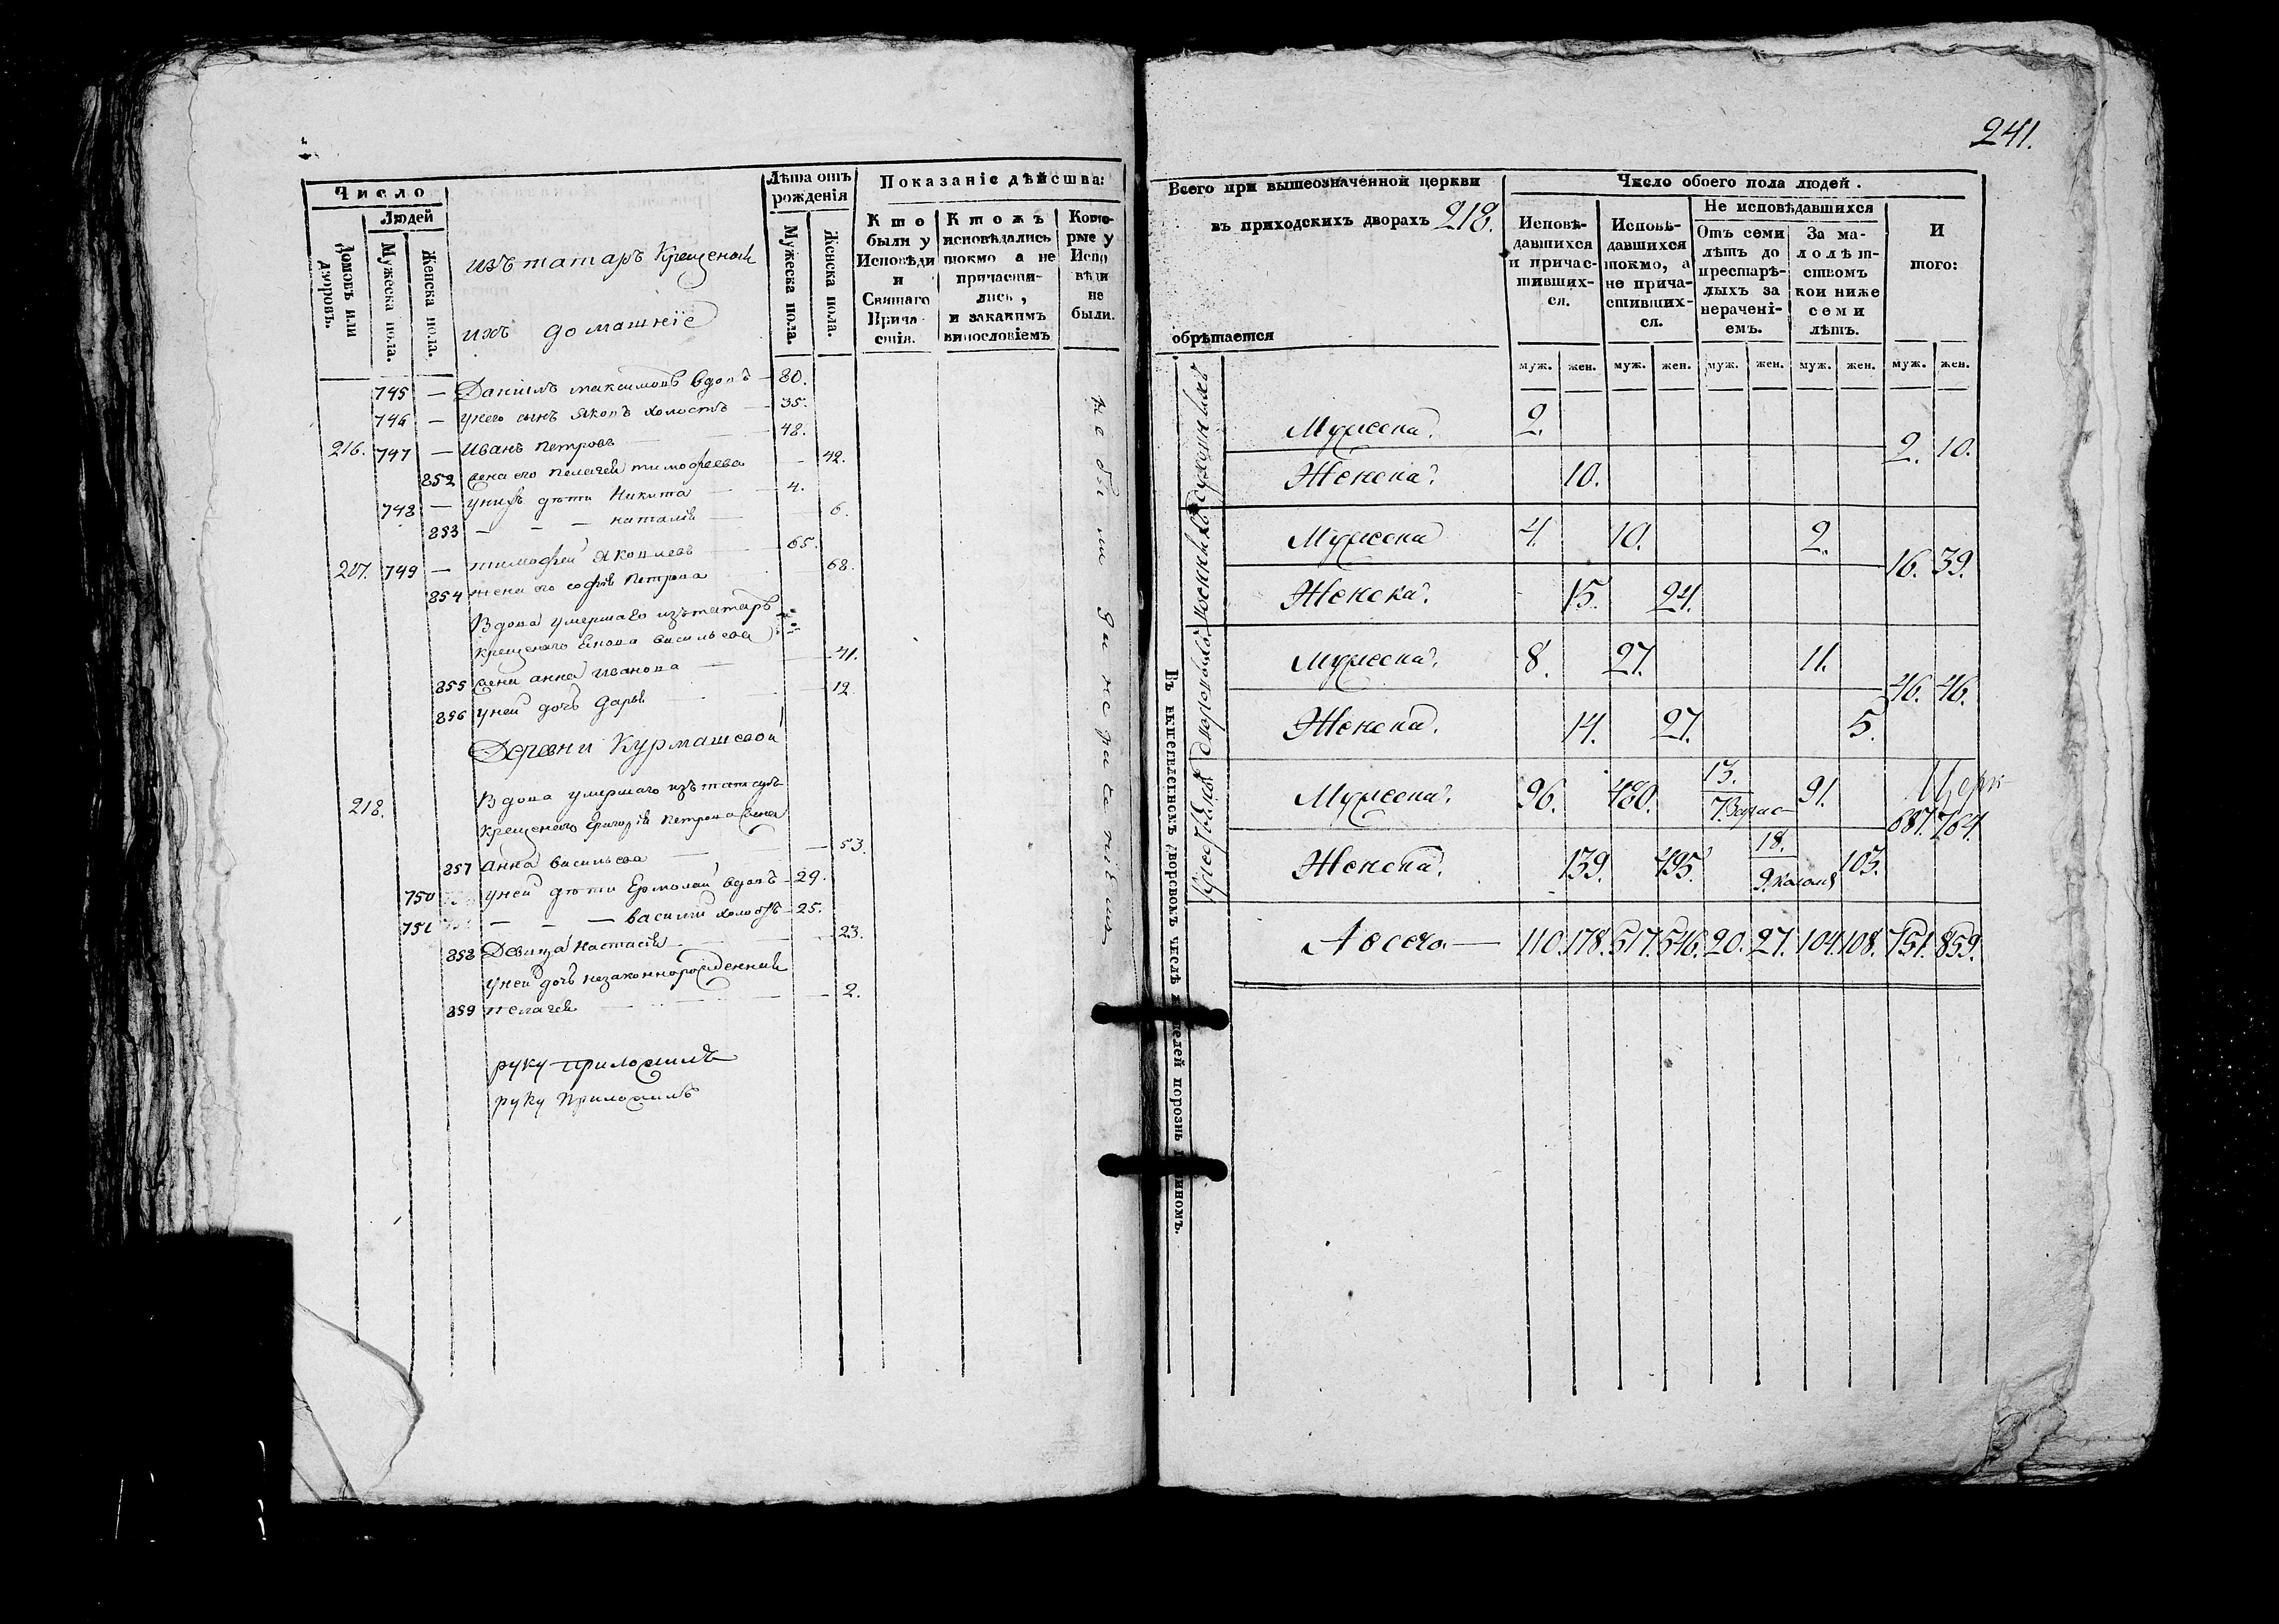 Число
Людей
Домовъ или дворовъ.
Мужеска пола.
Женска пола.
изъ татаръ Крещеныя
ихъ домашніе
Лѣта отъ рожденія
Мужеска пола.
Женска пола.
Показаніе дѣйства:
Кто были у Исповѣди и Святаго Прича- стія.
Ктожъ исповѣдались токмо а не причасти- лись, и закакимъ винословіемъ
Кото- рые у Испо вѣди не были.
745 — Даніилъ максимовъ вдовъ — 80.
746 — унего сынъ Яковъ холостъ — 35.
216. 747 — Иванъ петровъ — 48.
852 жена его пелагея тимофеева — 42.
748 — унихъ дѣти Никита — 4.
853 — — — наталія — 6.
217. 749 — тимофей Яковлевъ — 65.
854 жена его софія петрова 68.
Вдова умершаго изътатаръ
крещенаго васильева
855 жена анна иванова — 41.
856 уней дочь дарья — 12.
Деревни Курмашевой
218. Вдова умершаго изътатаръ
крещенаго григорія петрова жена
857 анна васильева — 53.
750 уней дѣти Ермолай вдовъ — 29.
751 — — василій холостъ — 25.
858 Девица настасія — 23.
уней дочь незаконнорожденная
859 пелагея — 2.
руку приложилъ
руку приложилъ
241.
Всего при вышеозначенной церкви
въ приходскихъ дворахъ 218.
обрѣтается
Число обоего пола людей.
Исповѣ- давшихся и причас- тивших- ся.
Исповѣ- давшихся токмо, а не прича- стивших- ся.
Не исповѣдавшихся
Отъ семи лѣтъ до престарѣ- лыхъ за нерачені- емъ.
За ма- лолѣт- ствомъ кои ниже семи лѣтъ.
И того:
муж. жен. муж. жен. муж. жен. муж. жен. муж. жен.
Мужеска. 2.
2. 10.
Женска. 10.
Мужеска 4. 10. 2.
16. 39.
Женска. 15. 24.
Мужеска. 8. 27. 11.
46. 46.
Женска. 14. 27. 5.
Мужеска. 96. 480. 13. 91.
687. 764.
Женска. 139. 495. 18. 103.
А всего — 110. 178. 517. 546. 20. 27. 104. 108. 751. 859.